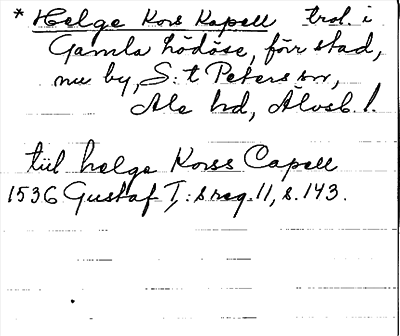 * Helge Kors Kapell trol. i
Gamla Lödöse, förr stad,
nu by, S:t Peters sn,
Ale hd, Älvsb. l.
tiil helge Korss Capell
1536 Gustaf I:s reg. 11, s. 143.